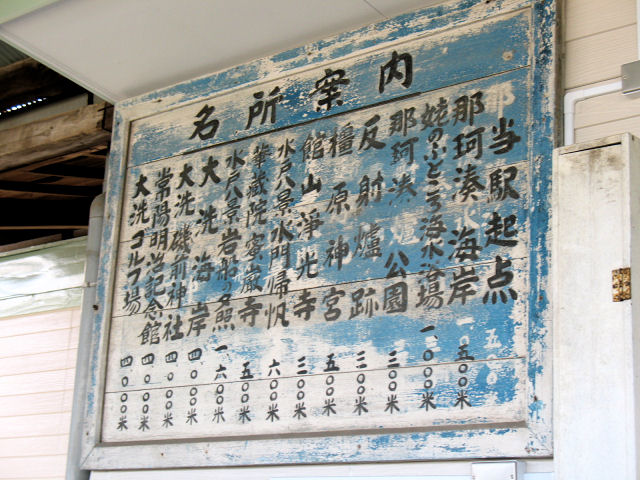 名所案内
当駅起点
那珂湊海岸 一、五〇〇米
姥のふところ海水浴場 一、〇〇〇米
那珂湊公園 三〇〇米
反射爐跡 三〇〇米
橿原神宮 五〇〇米
館山淨光寺 三〇〇米
水戸八景水門帰帆 六〇〇米
華蔵院蜜厳寺 五〇〇米
水戸八景岩船の夕照 一、六〇〇米
大洗海岸 四、〇〇〇米
大洗磯前神社 四、〇〇〇米
常陽明治記念館 四、〇〇〇米
大洗ゴルフ場 四、〇〇〇米